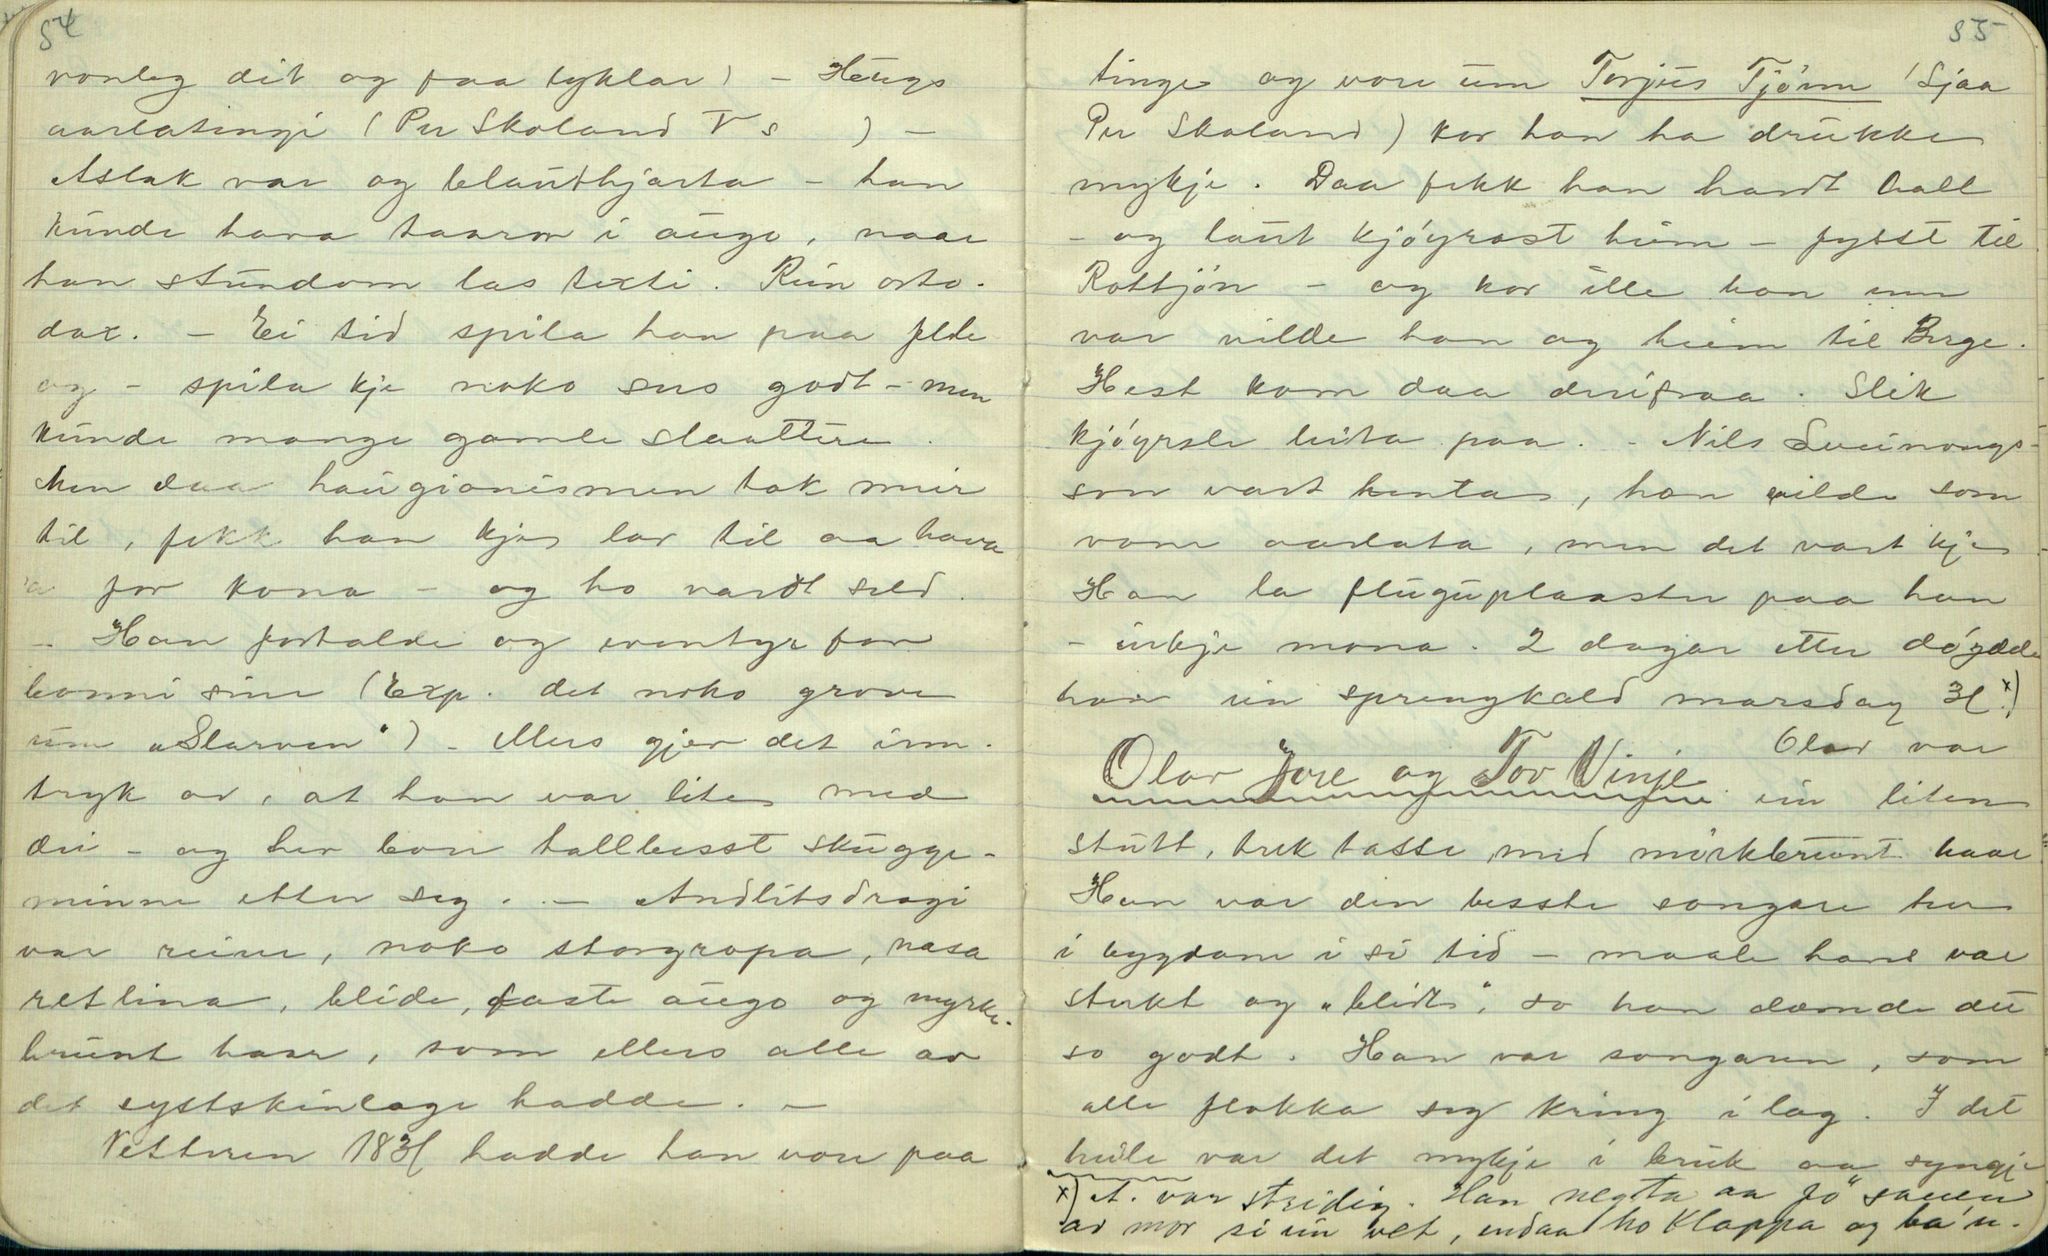 54
vonleg dit og paa lyklar) – Haugs
aarlatingi (Per Skoland T s ) –
Aslak var og blauthjarta – han
kunde hava taaror i augo, naar
han stundom las texti. Rein orto-
dox. – Ei tid spila han paa fele
og – spila kje noko sers godt – men
kunde mange gamle slaattar.
Men daa haugianismen tok meir
til, fekk han kje lov til aa hava
a for kona – og ho vardt seld.
– Han fortalde og eventyr for
bonni sine (Exp. det noko grove
um „Slarven") – ellers gjev det inn-
tryk av, at han var liten med
dei – og her bon tallbesst skugge-
minne etter seg. – Andlitsdragi
var reine, noko storgropa, nasa
retlina, blide, faste augo og myrke-
brunt haar, som ellers alle av
det systskinlage hadde. –
Vetteren 1834 hadde han vore paa
55
tinge og vore um Torjus Tjönn (Sjaa
Per Skoland) kor han ha drukke
mykje. Daa fekk han hardt hall
– og laut kjöyrast heim – fysst til
Rottjön – og kor ille han enn
var vilde han og heim til Berge.
Hest kom daa derifraa. Slik
kjöyrsle leita paa. – Nils Sveinongs-
son vart henta, han vilde som
vone aarlata, men det vart kje
Han la fluguplaaster paa han
– inkje mona. 2 dagar etter döydde
han ein sprengkald marsdag 34. x)
Olav Jore og Tov Vinje. Olav var
ein liten
stutt, trek tasse med mörkbrunt haar
Han var den besste songare her
i bygdom i si tid – maale hans var
sterkt og „blidt", so han dæmde dei
so godt. Han var songaren, som
alle flokka seg kring i lag. I det
heile var det mykje i bruk aa syngje
x) A. var stridig. Han negta aa fö sauen
av mor si ein vet, endaa ho klappa og ba'n.